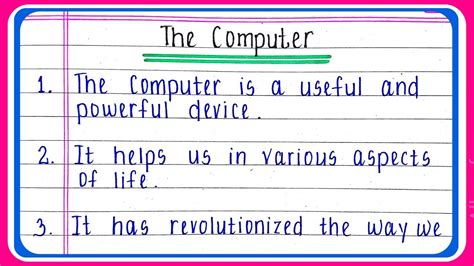 The Computer
1. The Computer is a useful and
powerful device.
2. It helps us in various aspects
of life.
3. It has revolutionized the way we